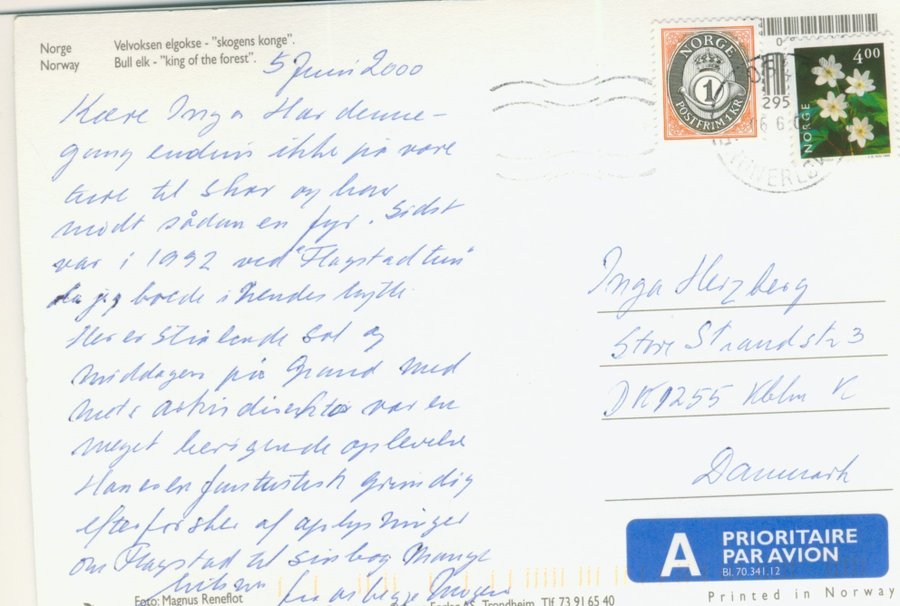 Norge
Norway
Velvoksen elgokse - "skogens konge".
Bull elk - "king of the forest".
5 Juni 2000
Kære Inga Har denne-
gang endnu ikke på vore
ture til Skar og har
mødt sådan en fyr. Sidst
var i 1992 ved "Flagstadtun"
da jeg boede i hendes hytte
Her er strålende sol og
middagen på Grand med
var en
meget berigende oplevelse
Han er en fantastisk grundig
efterforsker af oplysninger
om Flagstad til sin bog Mange
hilsner fra os begge Mogens
Foto: Magnus Reneflot
Trondheim Tlf 73 91 65 40
NORGE
1
POSTFRIM 1 KR
295
4.00
NORGE
Inga Herzberg
Store Strandstr 3
DK 1255 Kbhn K
Danmark
A PRIORITAIRE
PAR AVION
Bl. 70.341.12
Printed in Norway